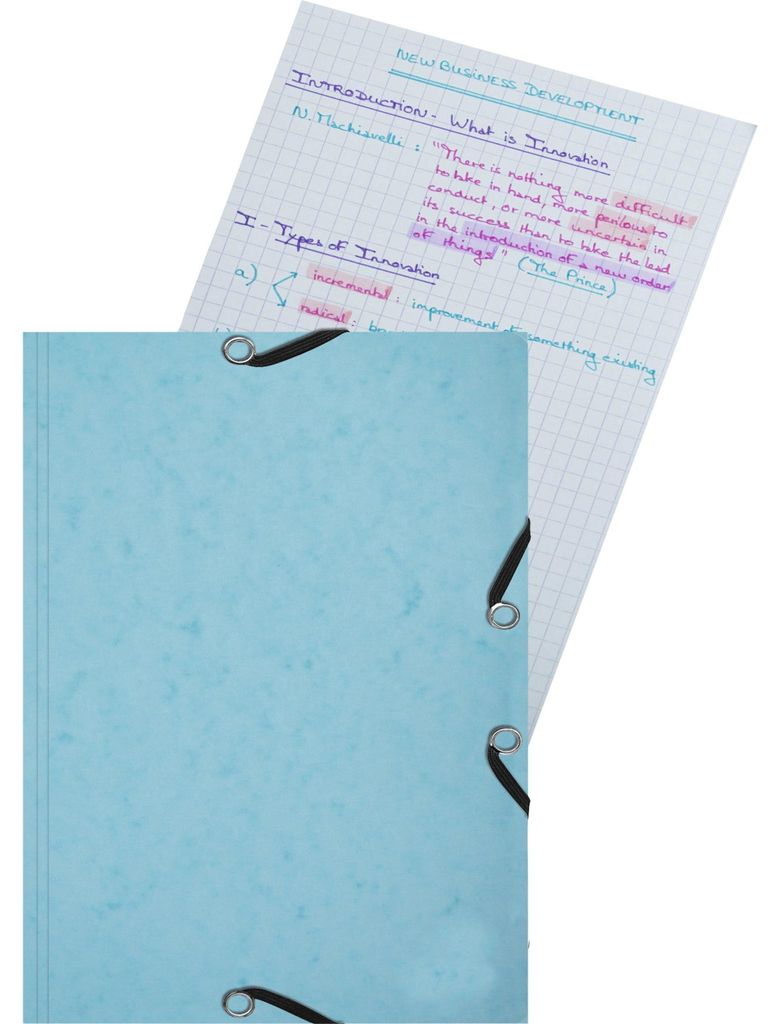 NEW BUSINESS DEVELOPMENT
INTRODUCTION - What is Innovation
N. Machiavelli : "There is nothing more difficult
to take in hand, more perilous to
conduct, or more uncertain in
its success than to take the lead
in the introduction of a new order
of things" (The Prince)
I - Types of Innovation
a) incremental : improvement of something existing
radical :